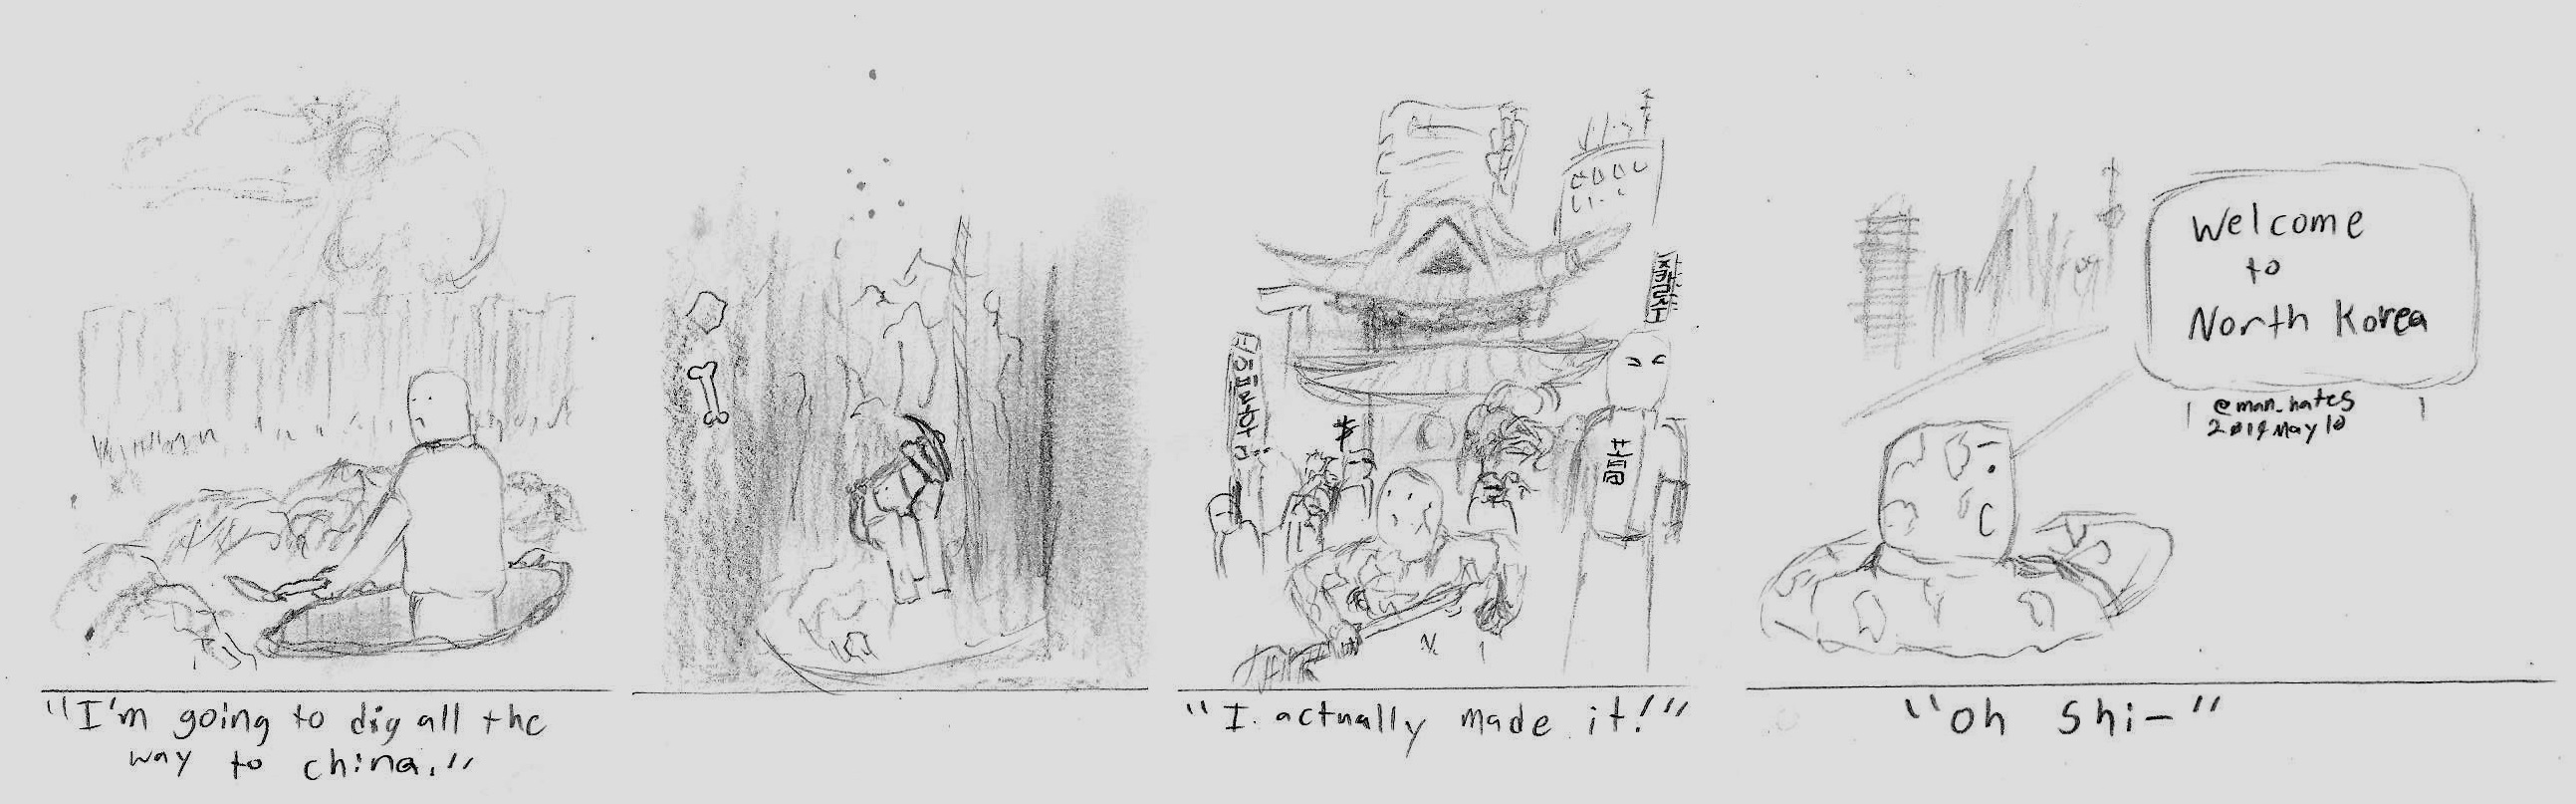 "I'm going to dig all the
way to china."
"I actually made it!"
Welcome
to
North Korea
@man_hates
2019 May 10
"oh shi-"